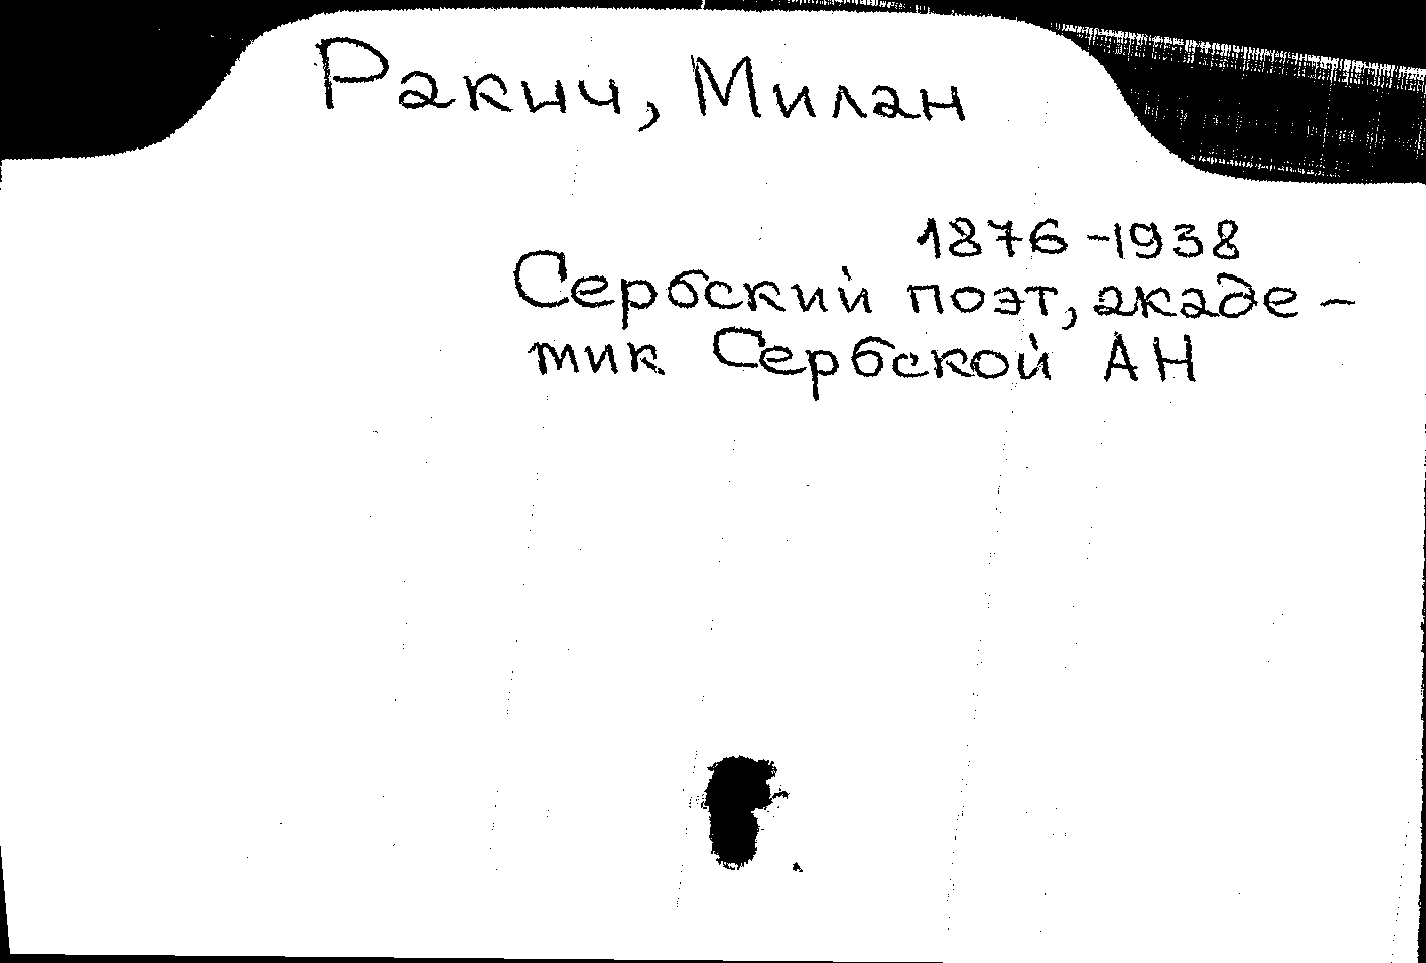 Ракич, Милан
1876-1938
Сербский поэт, акаде-
мик Сербской АН